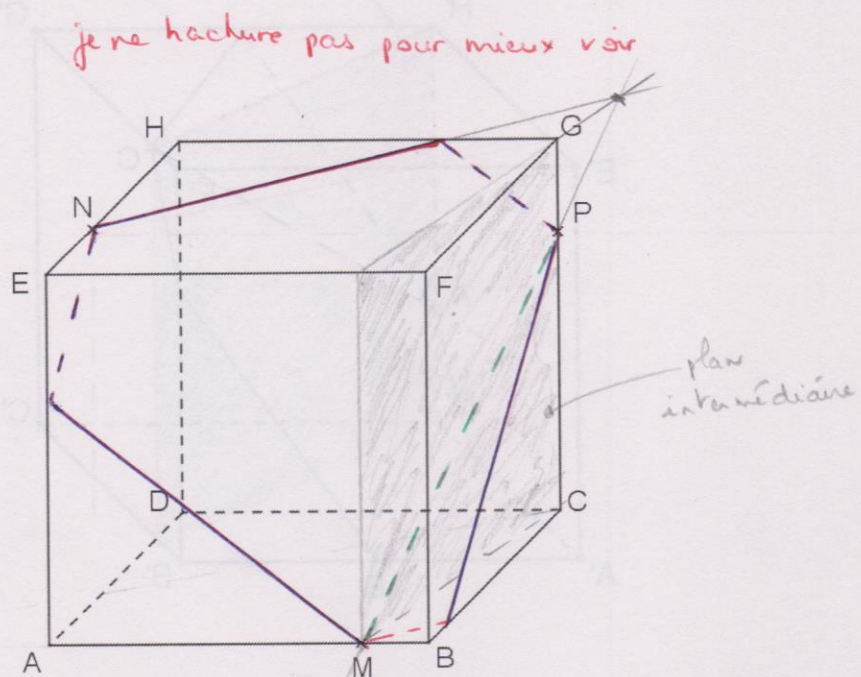 je ne hachure pas pour mieux voir
H
G
N
P
E
F
plan
intermédiaire
D
C
A
M
B